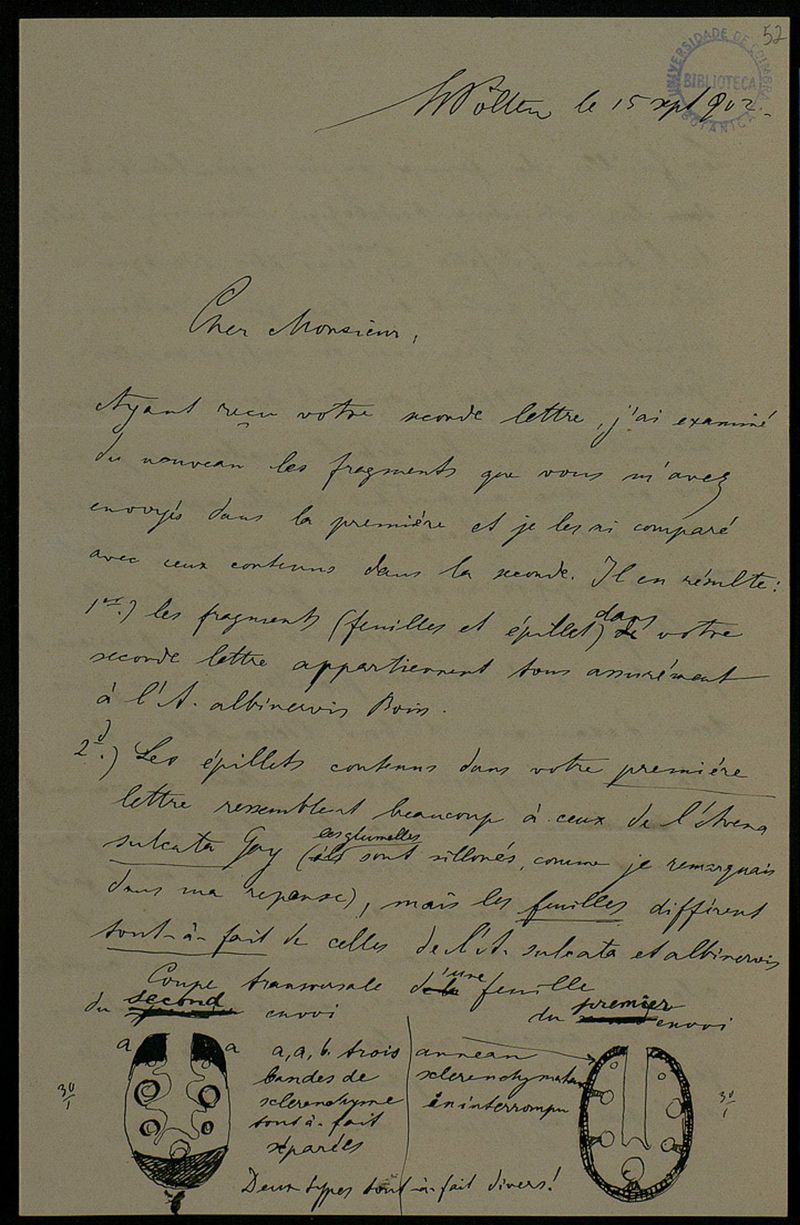 52
UNIVERSIDADE DE COIMBRA
BIBLIOTECA
BOTANICA
St Pölten le 15 sept 902.
Cher Monsieur,
Ayant reçu votre seconde lettre, j'ai examiné
du nouveau les fragments que vous m'avez
envoyés dans la première et je les ai comparé
avec ceux contenus dans la seconde. Il en résulte:
1er.) les fragments (feuilles et épillet) dans votre
seconde lettre appartiennent tous assurément
à l'A. albinervis Bois.
2d.) Les épillets contenus dans votre première
lettre ressemblent beaucoup à ceux de l'Avena
sulcata Gay (les glumelles sont sillonés, comme je remarquais
dans ma reponse), mais les feuilles différent
tout-à-fait de celles de l'A. sulcata et albinervis
Coupe transversale d'une feuille
du second envoi
du premier envoi
a a
a, a, b. trois
bandes de
sclerenchyme
tout à-fait
séparées
30/1
anneau
sclerenchymatam
ininterrompu
30/1
Deux types tout à-fait divers!